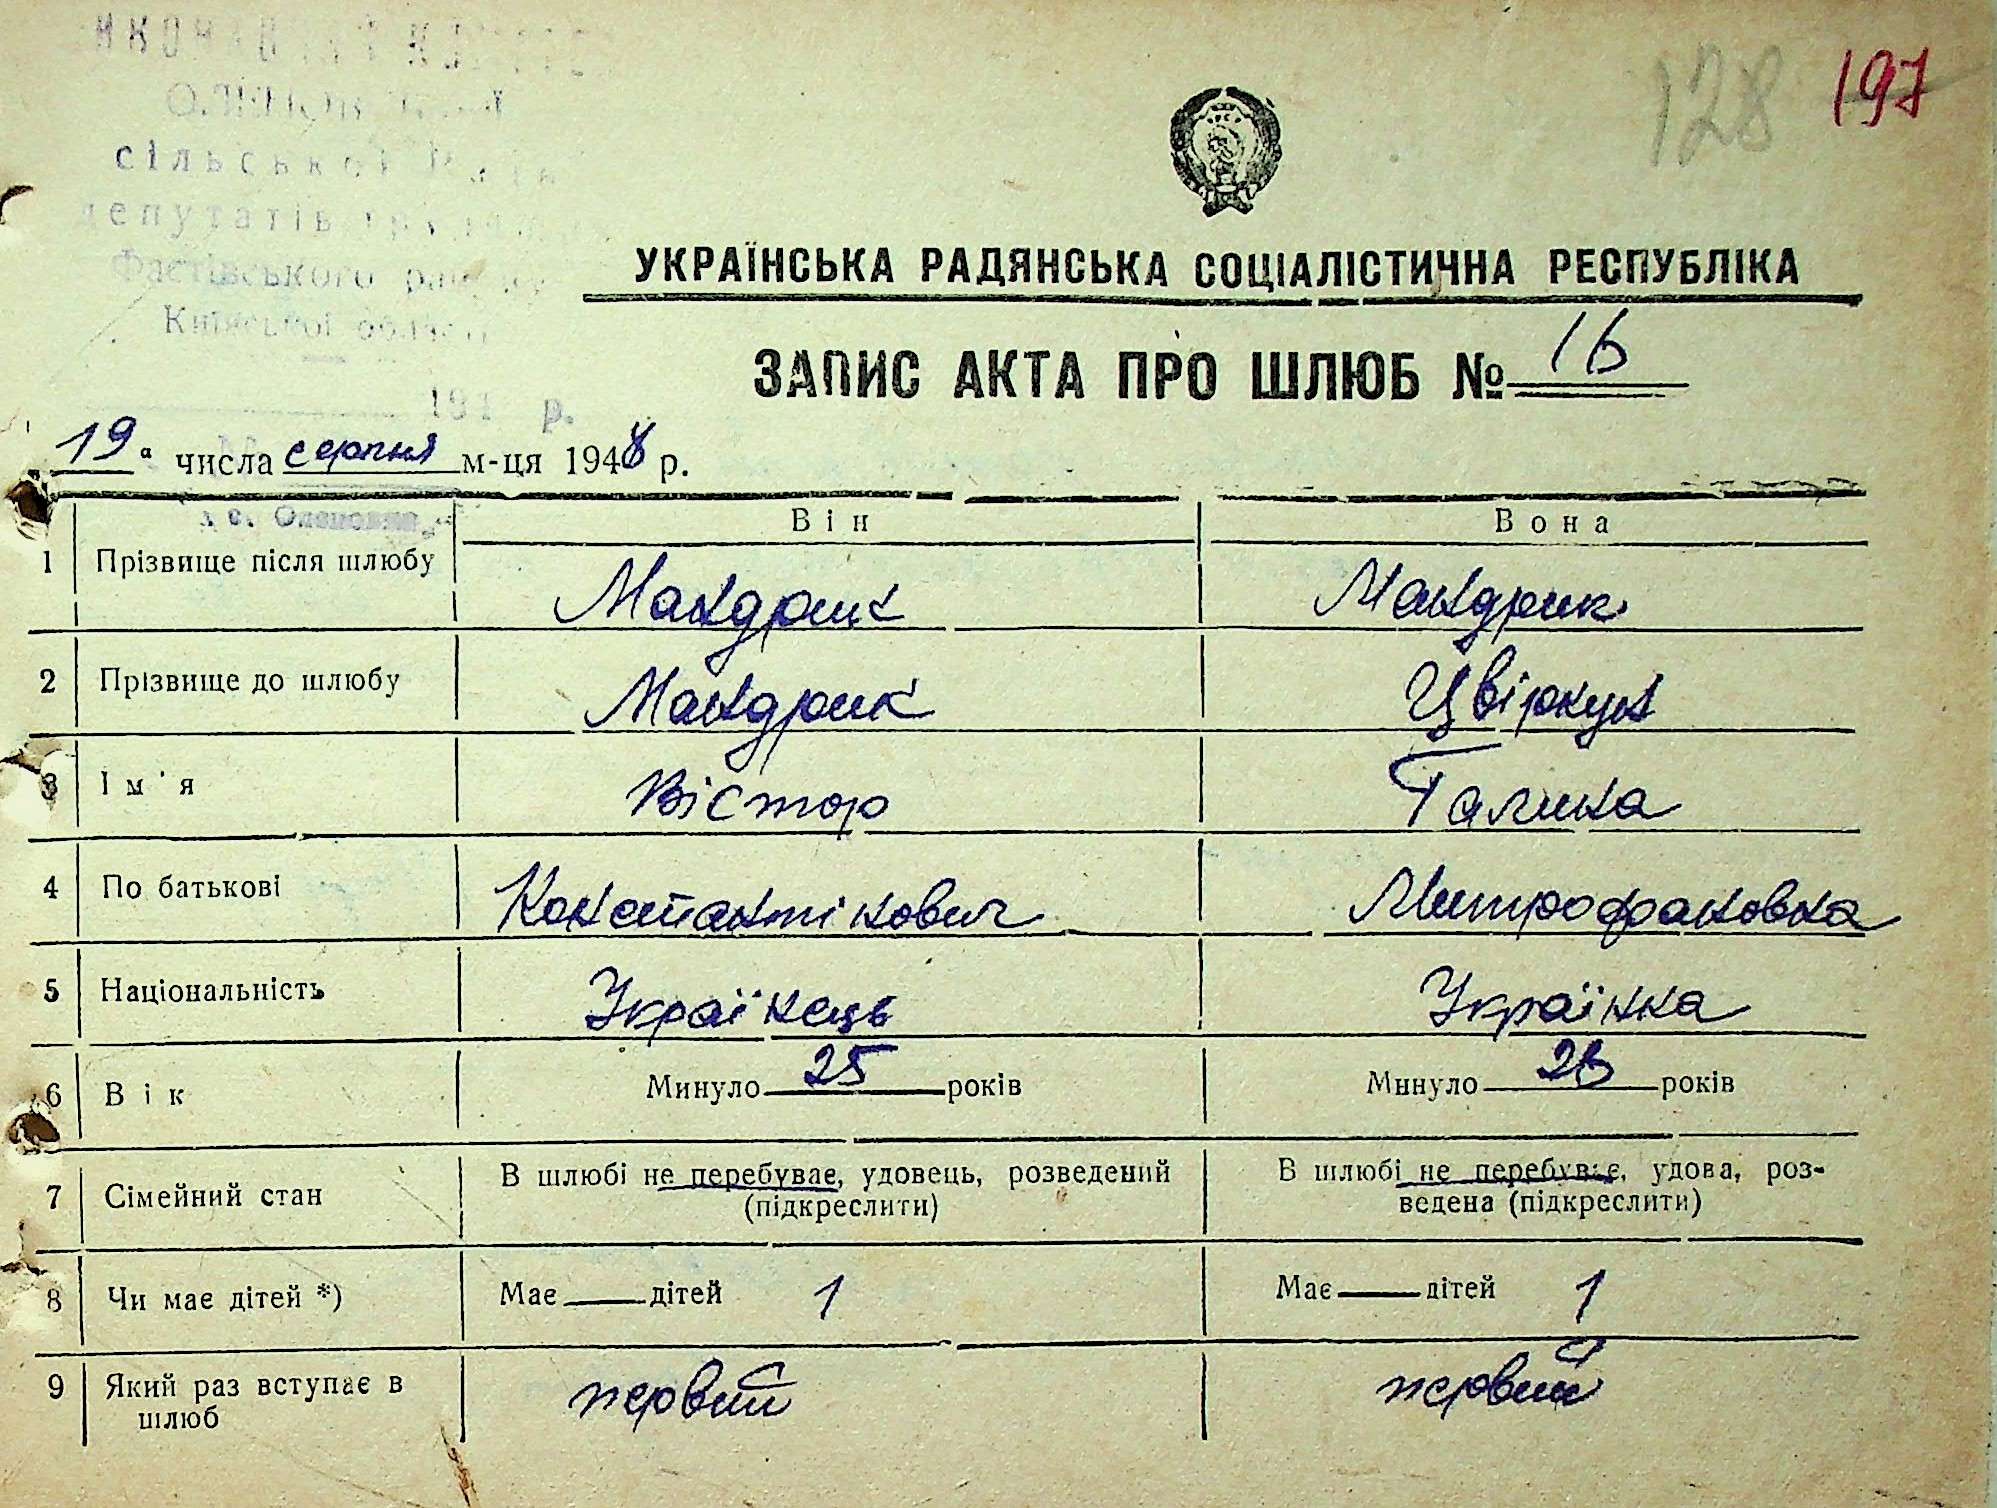 128 197
сільської
депутатів
Фастівського району
Київської області
УКРАЇНСЬКА РАДЯНСЬКА СОЦІАЛІСТИЧНА РЕСПУБЛІКА
ЗАПИС АКТА ПРО ШЛЮБ № 16
194 р.
19 " числа серпня м-ця 1948 р.
с. Оленовка
Він Вона
1 Прізвище після шлюбу Мандрик Мандрик
2 Прізвище до шлюбу Мандрик Цвіркун
3 Ім'я Вістор Галина
4 По батькові Константінович Митрофановна
5 Національність Українець Українка
6 Вік Минуло 25 років Минуло 23 років
7 Сімейний стан В шлюбі не перебуває, удовець, розведений В шлюбі не перебуває, удова, роз-
(підкреслити) ведена (підкреслити)
8 Чи має дітей *) Має дітей 1 Має дітей 1
9 Який раз вступає в первий первий
шлюб